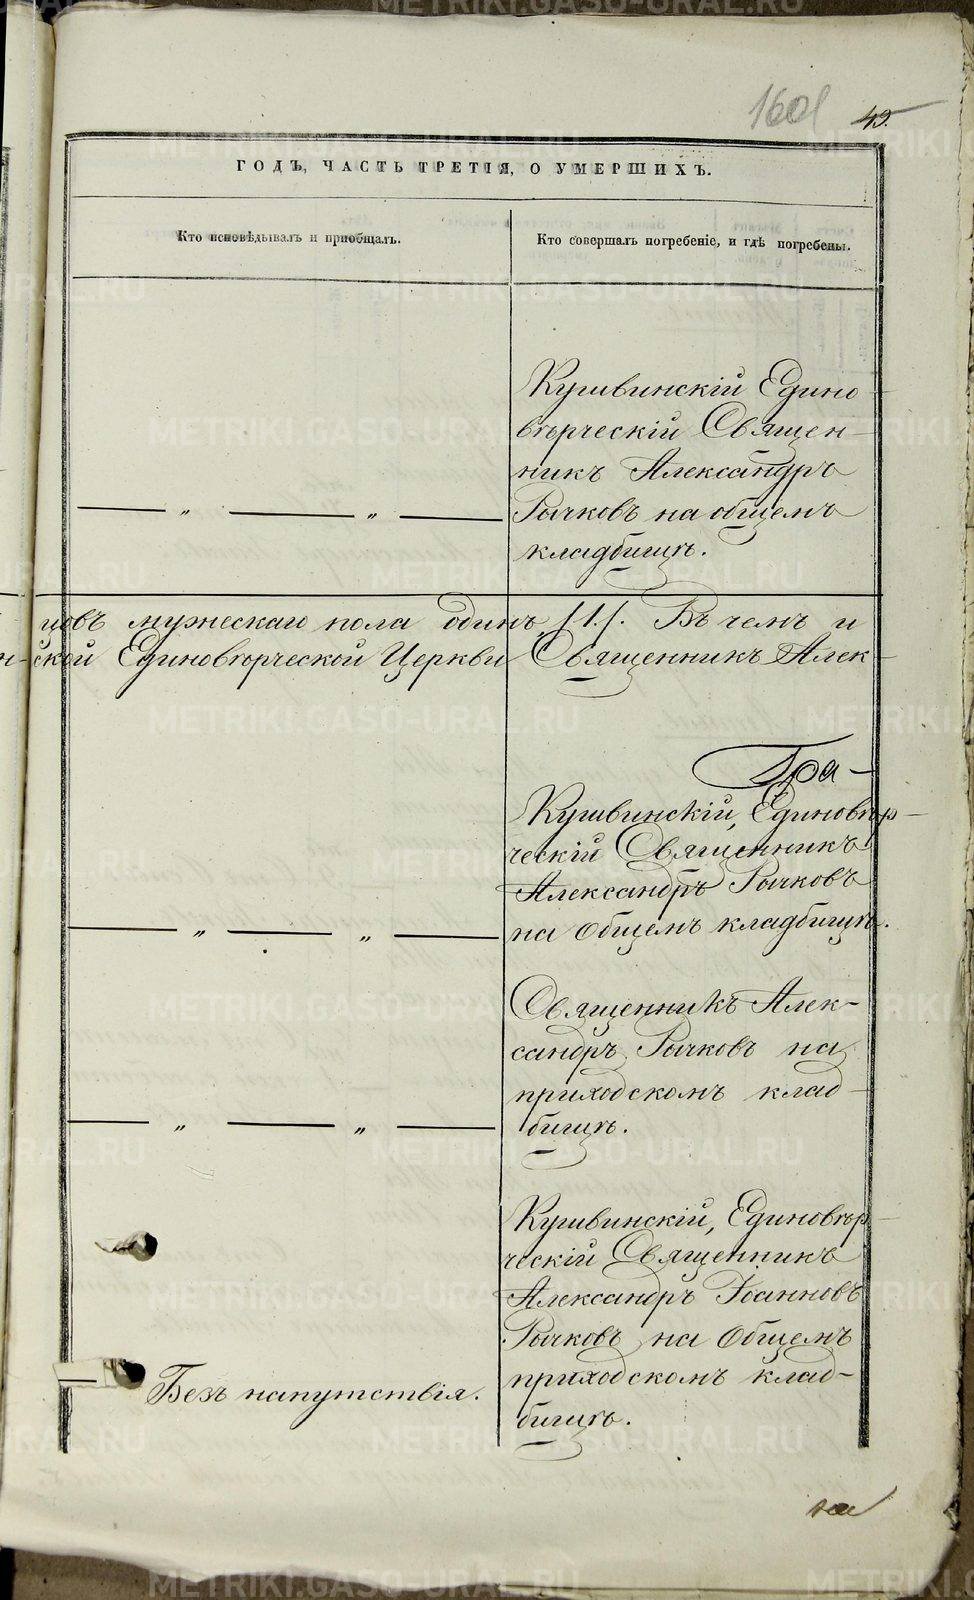 1601 49.
ГОДЪ, ЧАСТЬ ТРЕТІЯ, О УМЕРШИХЪ.
Кто исповѣдывалъ и пріобщалъ.
Кто совершалъ погребеніе, и гдѣ погребены.
Кушвинскій Едино-
вѣрческій Священ-
никъ Александръ
Рычковъ на общемъ
кладбищѣ.
— „ — „ —
цовъ мужескаго пола одинъ /1./. Въ чемъ и
ской Единовѣрческой Церкви Священникъ Алек-
Гра-
Кушвинскій, Единовѣр-
ческій Священникъ
Александръ Рычковъ
на Общемъ кладбищѣ.
— „ — „ —
Священникъ Алек-
сандръ Рычковъ на
приходскомъ клад-
бищѣ.
— „ — „ —
Кушвинскій, Единовѣр-
ческій Священникъ
Александръ Іоанновъ
Рычковъ на Общемъ
приходскомъ клад-
бищѣ.
Безъ напутствія.
METRIKI.GASO-URAL.RU